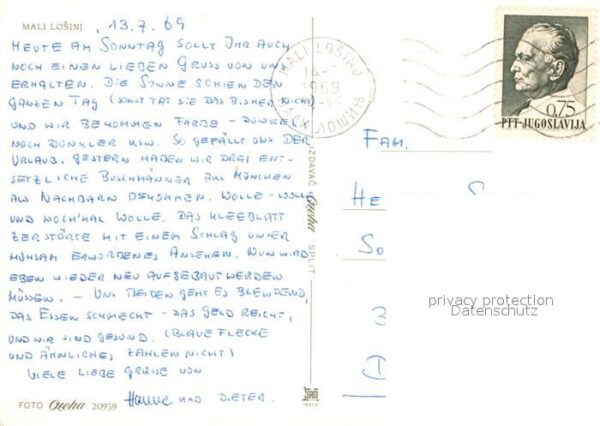 MALI LOŠINJ, 13.7.69
HEUTE AM SONNTAG SOLLT IHR AUCH
NOCH EINEN LIEBEN GRUSS VON UNS
ERHALTEN. DIE SONNE SCHIEN DEN
GANZEN TAG (SONST TAT SIE DAS BISHER NICHT)
UND WIR BEKOMMEN FARBE - DUNKEL
NOCH DUNKLER USW. SO GEFÄLLT UNS DER
URLAUB. GESTERN HABEN WIR DREI ENT-
SETZLICHE BUSCHMÄNNER AUS MÜNCHEN
ALS NACHBARN BEKOMMEN. WOLLE - WOLLE
UND NOCH'MAL WOLLE. DAS KLEEBLATT
ZERSTÖRTE MIT EINEM SCHLAG UNSER
MÜHSAM ERWORBENES ANSEHEN. NUN WIRD
EBEN WIEDER NEU AUFGEBAUT WERDEN
MÜSSEN. - UNS BEIDEN GEHT ES BLENDEND,
DAS ESSEN SCHMECKT - DAS GELD REICHT,
UND WIR SIND GESUND. (BLAUE FLECKE
UND ÄHNLICHES ZÄHLEN NICHT)
VIELE LIEBE GRÜSSE VON
Hanne UND DIETER.
FOTO Ozeha 20959
IZDAVAČ Ozeha SPLIT
MALI LOŠINJ
1969
0,75
PTT-JUGOSLAVIJA
FAM.
HE
SO
privacy protection
Datenschutz